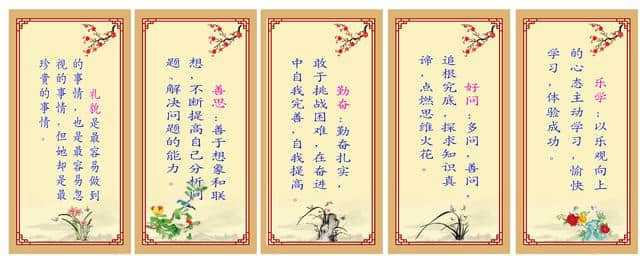 礼貌是最容易做到
的事情，也是最容易忽
视的事情，但她却是最
珍贵的事情。
善思：善于想象和联
想，不断提高自己分析问
题、解决问题的能力。
勤奋：勤奋扎实，
敢于挑战困难，在奋进
中自我完善，自我提高。
好问：多问，善问，
追根究底，探求知识真
谛，点燃思维火花。
乐学：以乐观向上
的心态主动学习，愉快
学习，体验成功。